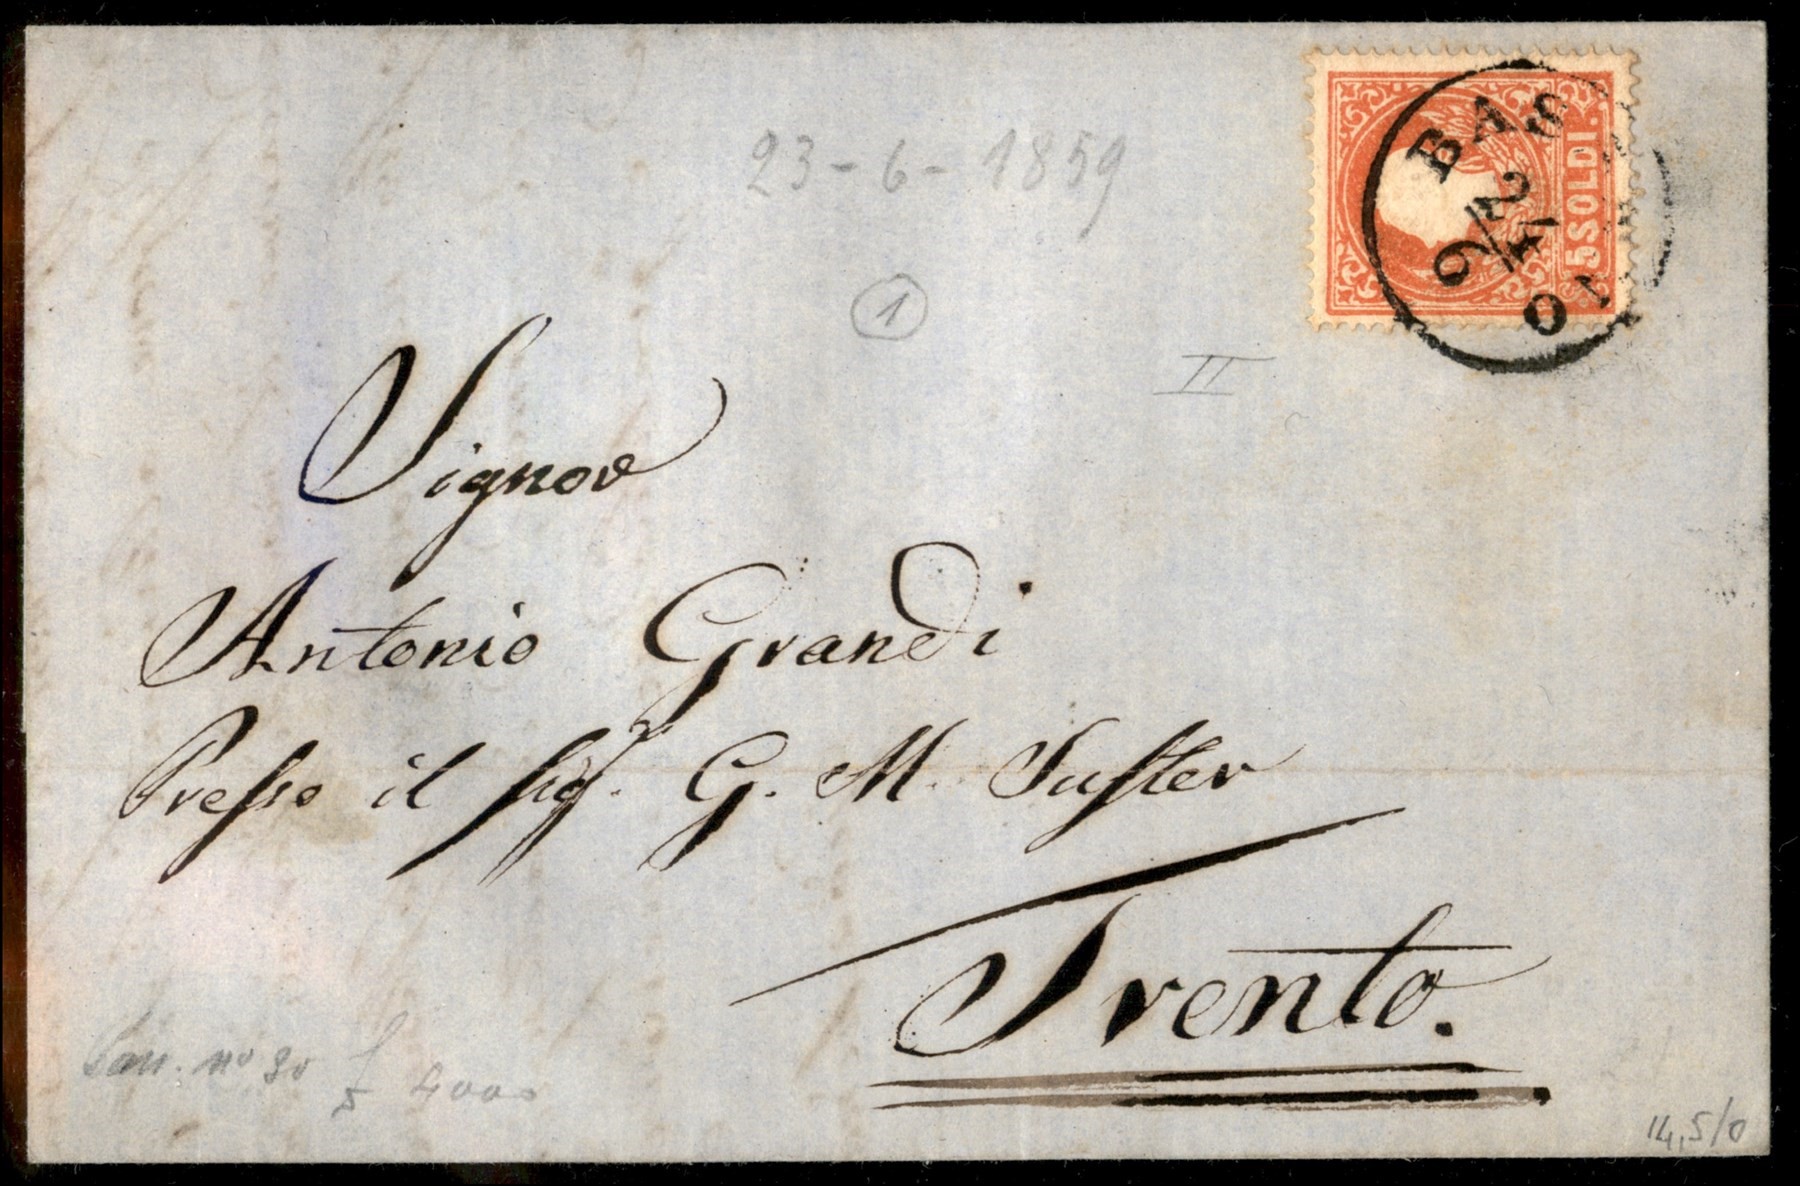 23-6-1859
BAS
24/6
NO
5 SOLDI.
1
II
Signor
Antonio Grandi
Presso il Sig. G. M. Suster
Trento.
4000
14,5/0